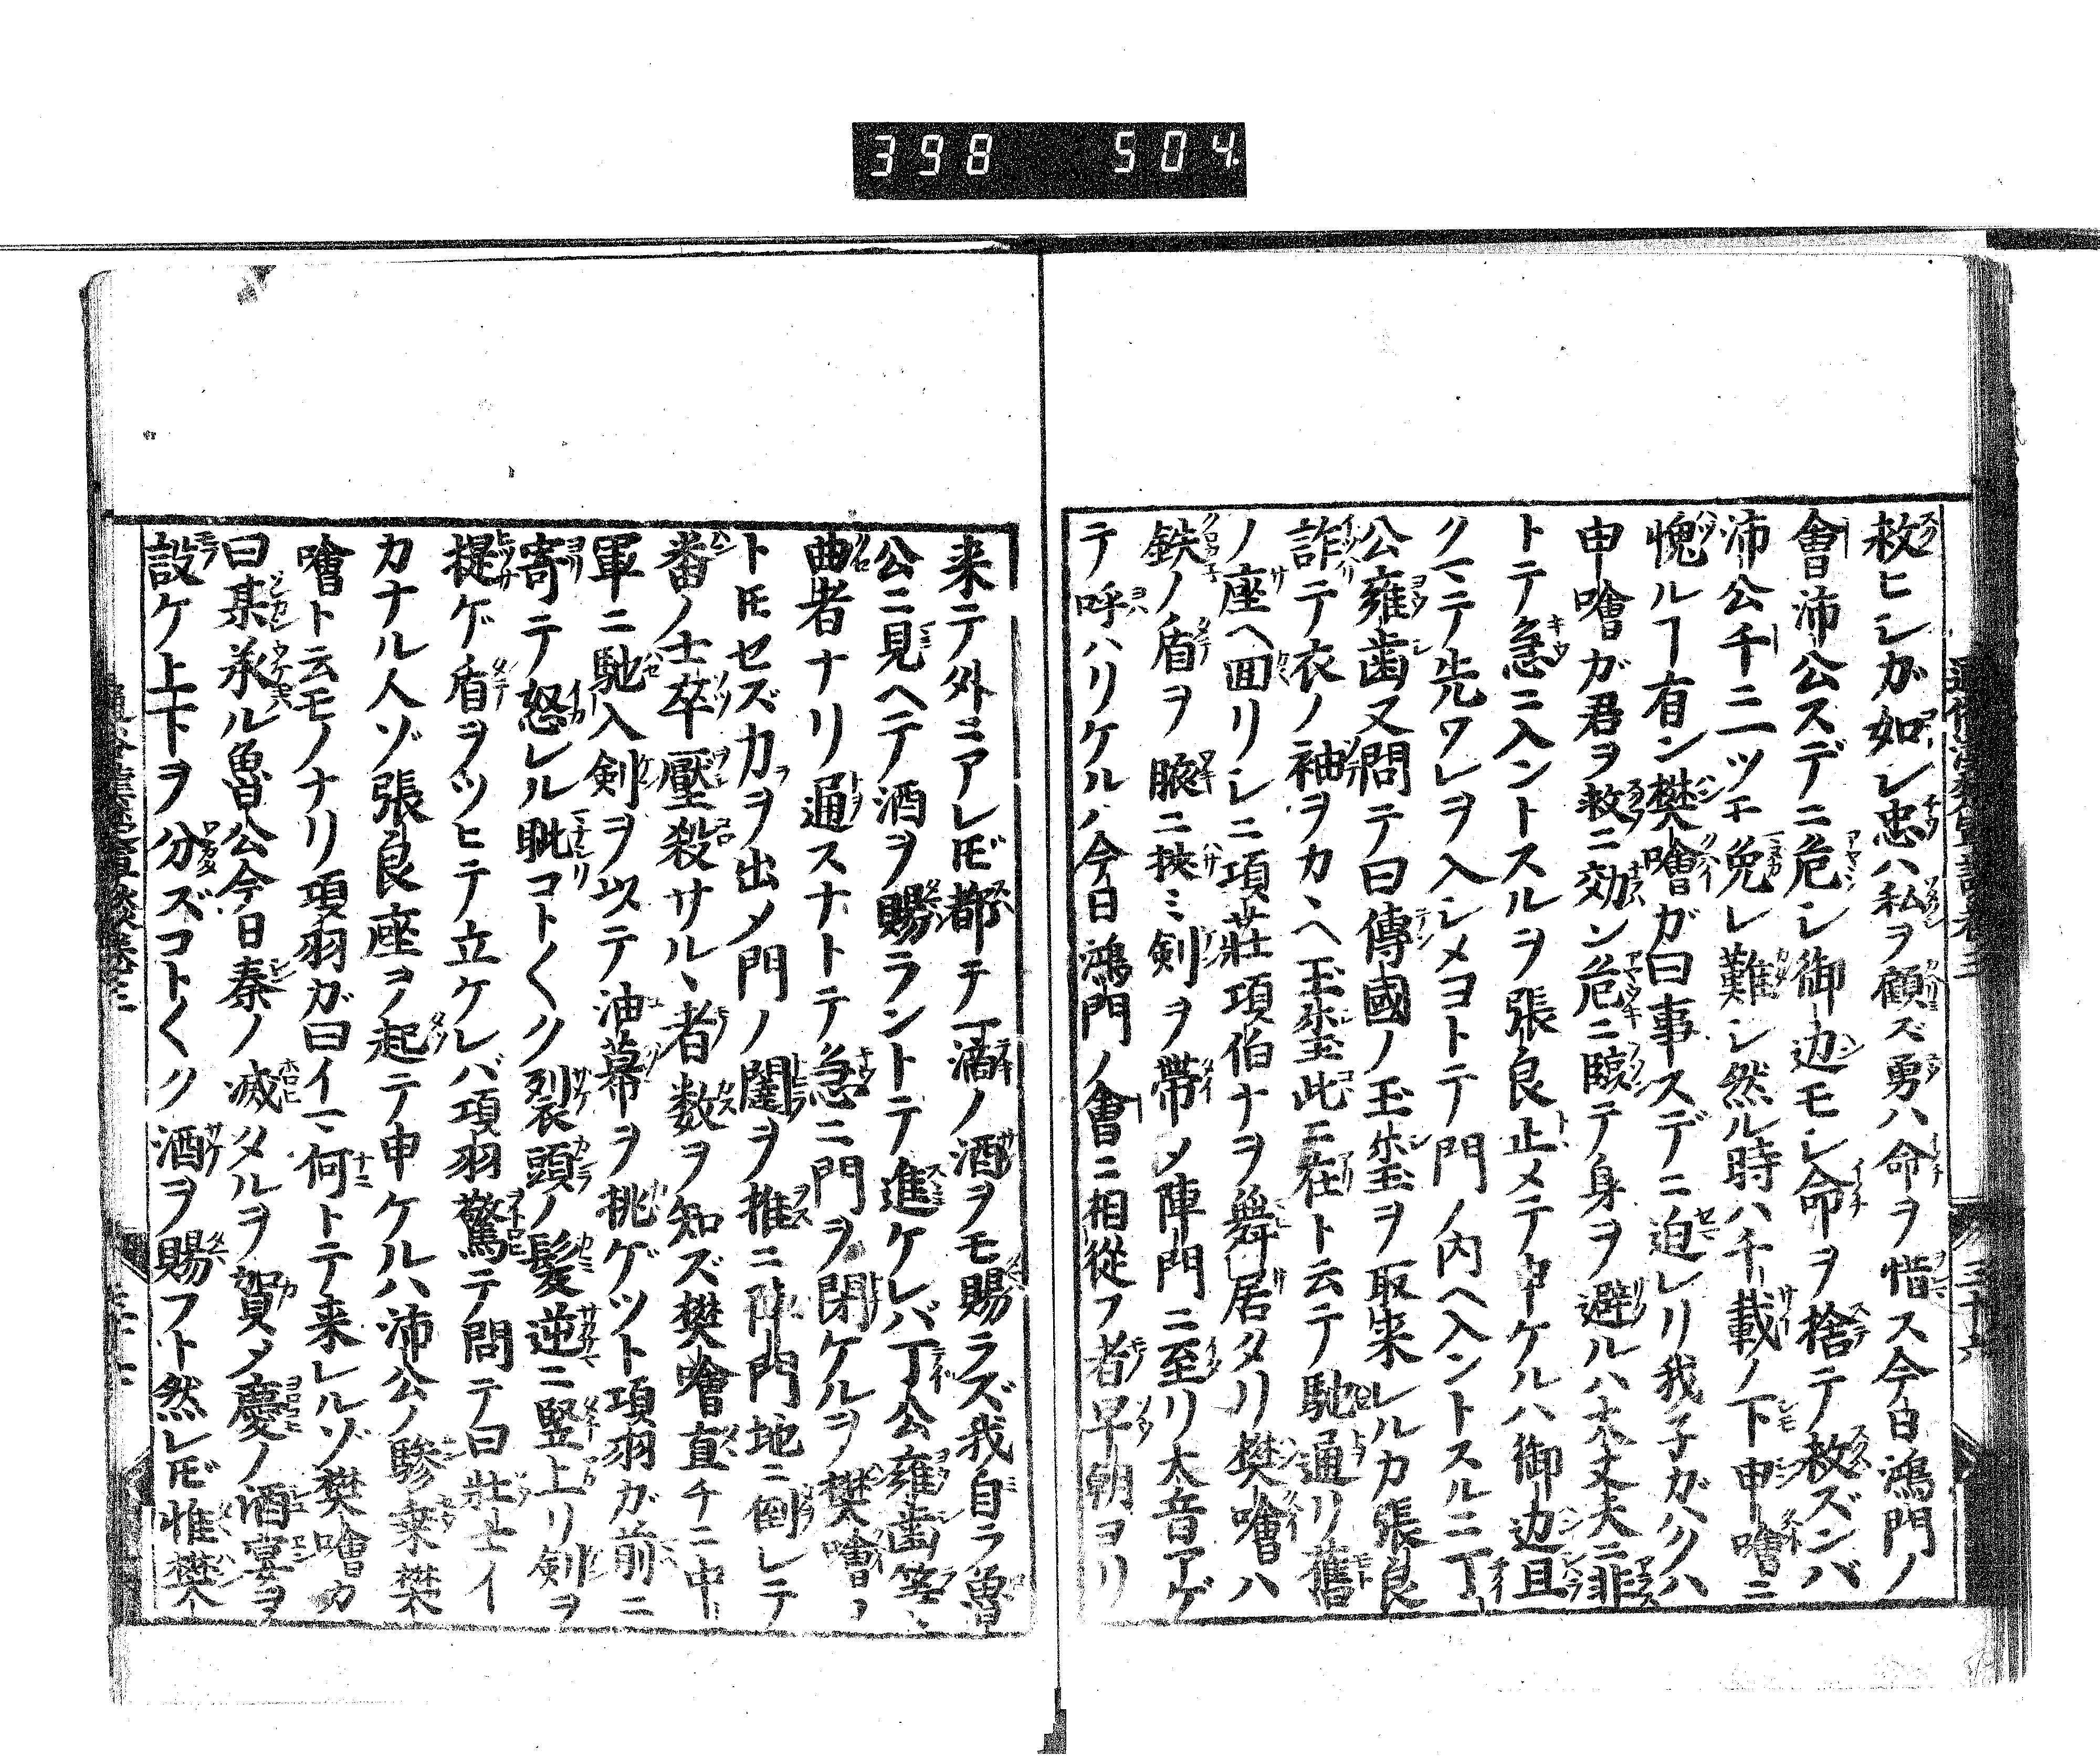 398 504
救ヒシガ如シ忠ハ私ヲ顧ズ勇ハ命ヲ惜ス今日鴻門ノ
會沛公スデニ危シ御辺モシ命ヲ捨テ救ズンバ
沛公千ニ一ツモ免レ難シ然ル時ハ千載ノ下申噲ニ
愧ルヿ有ン樊噲ガ曰事スデニ迫レリ我子ガハクハ
申噲ガ君ヲ救ニ効ン危ニ臨テ身ヲ避ルハ大丈夫ニ非
トテ急ニ入ントスルヲ張良止メテ申ケルハ御辺且
クマテ先ワレヲ入シメヨトテ門ノ内ヘ入ントスルニ丁
公雍歯又問テ曰傳國ノ玉璽ヲ取来レルカ張良
詐テ衣ノ袖ヲカヽヘ玉璽此ニ在ト云テ馳通リ舊
ノ座ヘ回リシニ項莊項伯ナヲ舞居タリ樊噲ハ
鉄ノ盾ヲ腋ニ挾ミ剣ヲ帯メ陣門ニ至リ大音アゲ
テ呼ハリケルハ今日鴻門ノ會ニ相從フ者早朝ヨリ
来テ外ニアレ𪜈都テ一滴ノ酒ヲモ賜ラズ我自ラ魯
公ニ見ヘテ酒ヲ賜ラントテ進ケレバ丁公雍歯等
曲者ナリ通スナトテ急ニ門ヲ閉ケルヲ樊噲
ト𪜈セズカヲ出メ門ノ闥ヲ推ニ陣門地ニ倒レテ
番ノ士卒壓殺サルヽ者数ヲ知ズ樊噲直チニ中
軍ニ馳入剣ヲ以テ油幕ヲ挑ゲツト項羽ガ前ニ
寄テ怒レル眦コト〱ク裂頭ノ髪逆ニ竪上リ剣ヲ
提ゲ盾ヲツヒテ立ケレバ項羽驚テ問テ曰壮士イ
カナル人ゾ張良座ヲ起テ申ケルハ沛公ノ驂乗樊
噲ト云モノナリ項羽ガ曰イマ何トテ来レルゾ樊噲カ
曰某承ル魯公今日秦ノ滅メルヲ賀メ慶ノ酒宴ヲ
設ケ上下ヲ分ズコト〱ク酒ヲ賜フト然レ𪜈惟樊